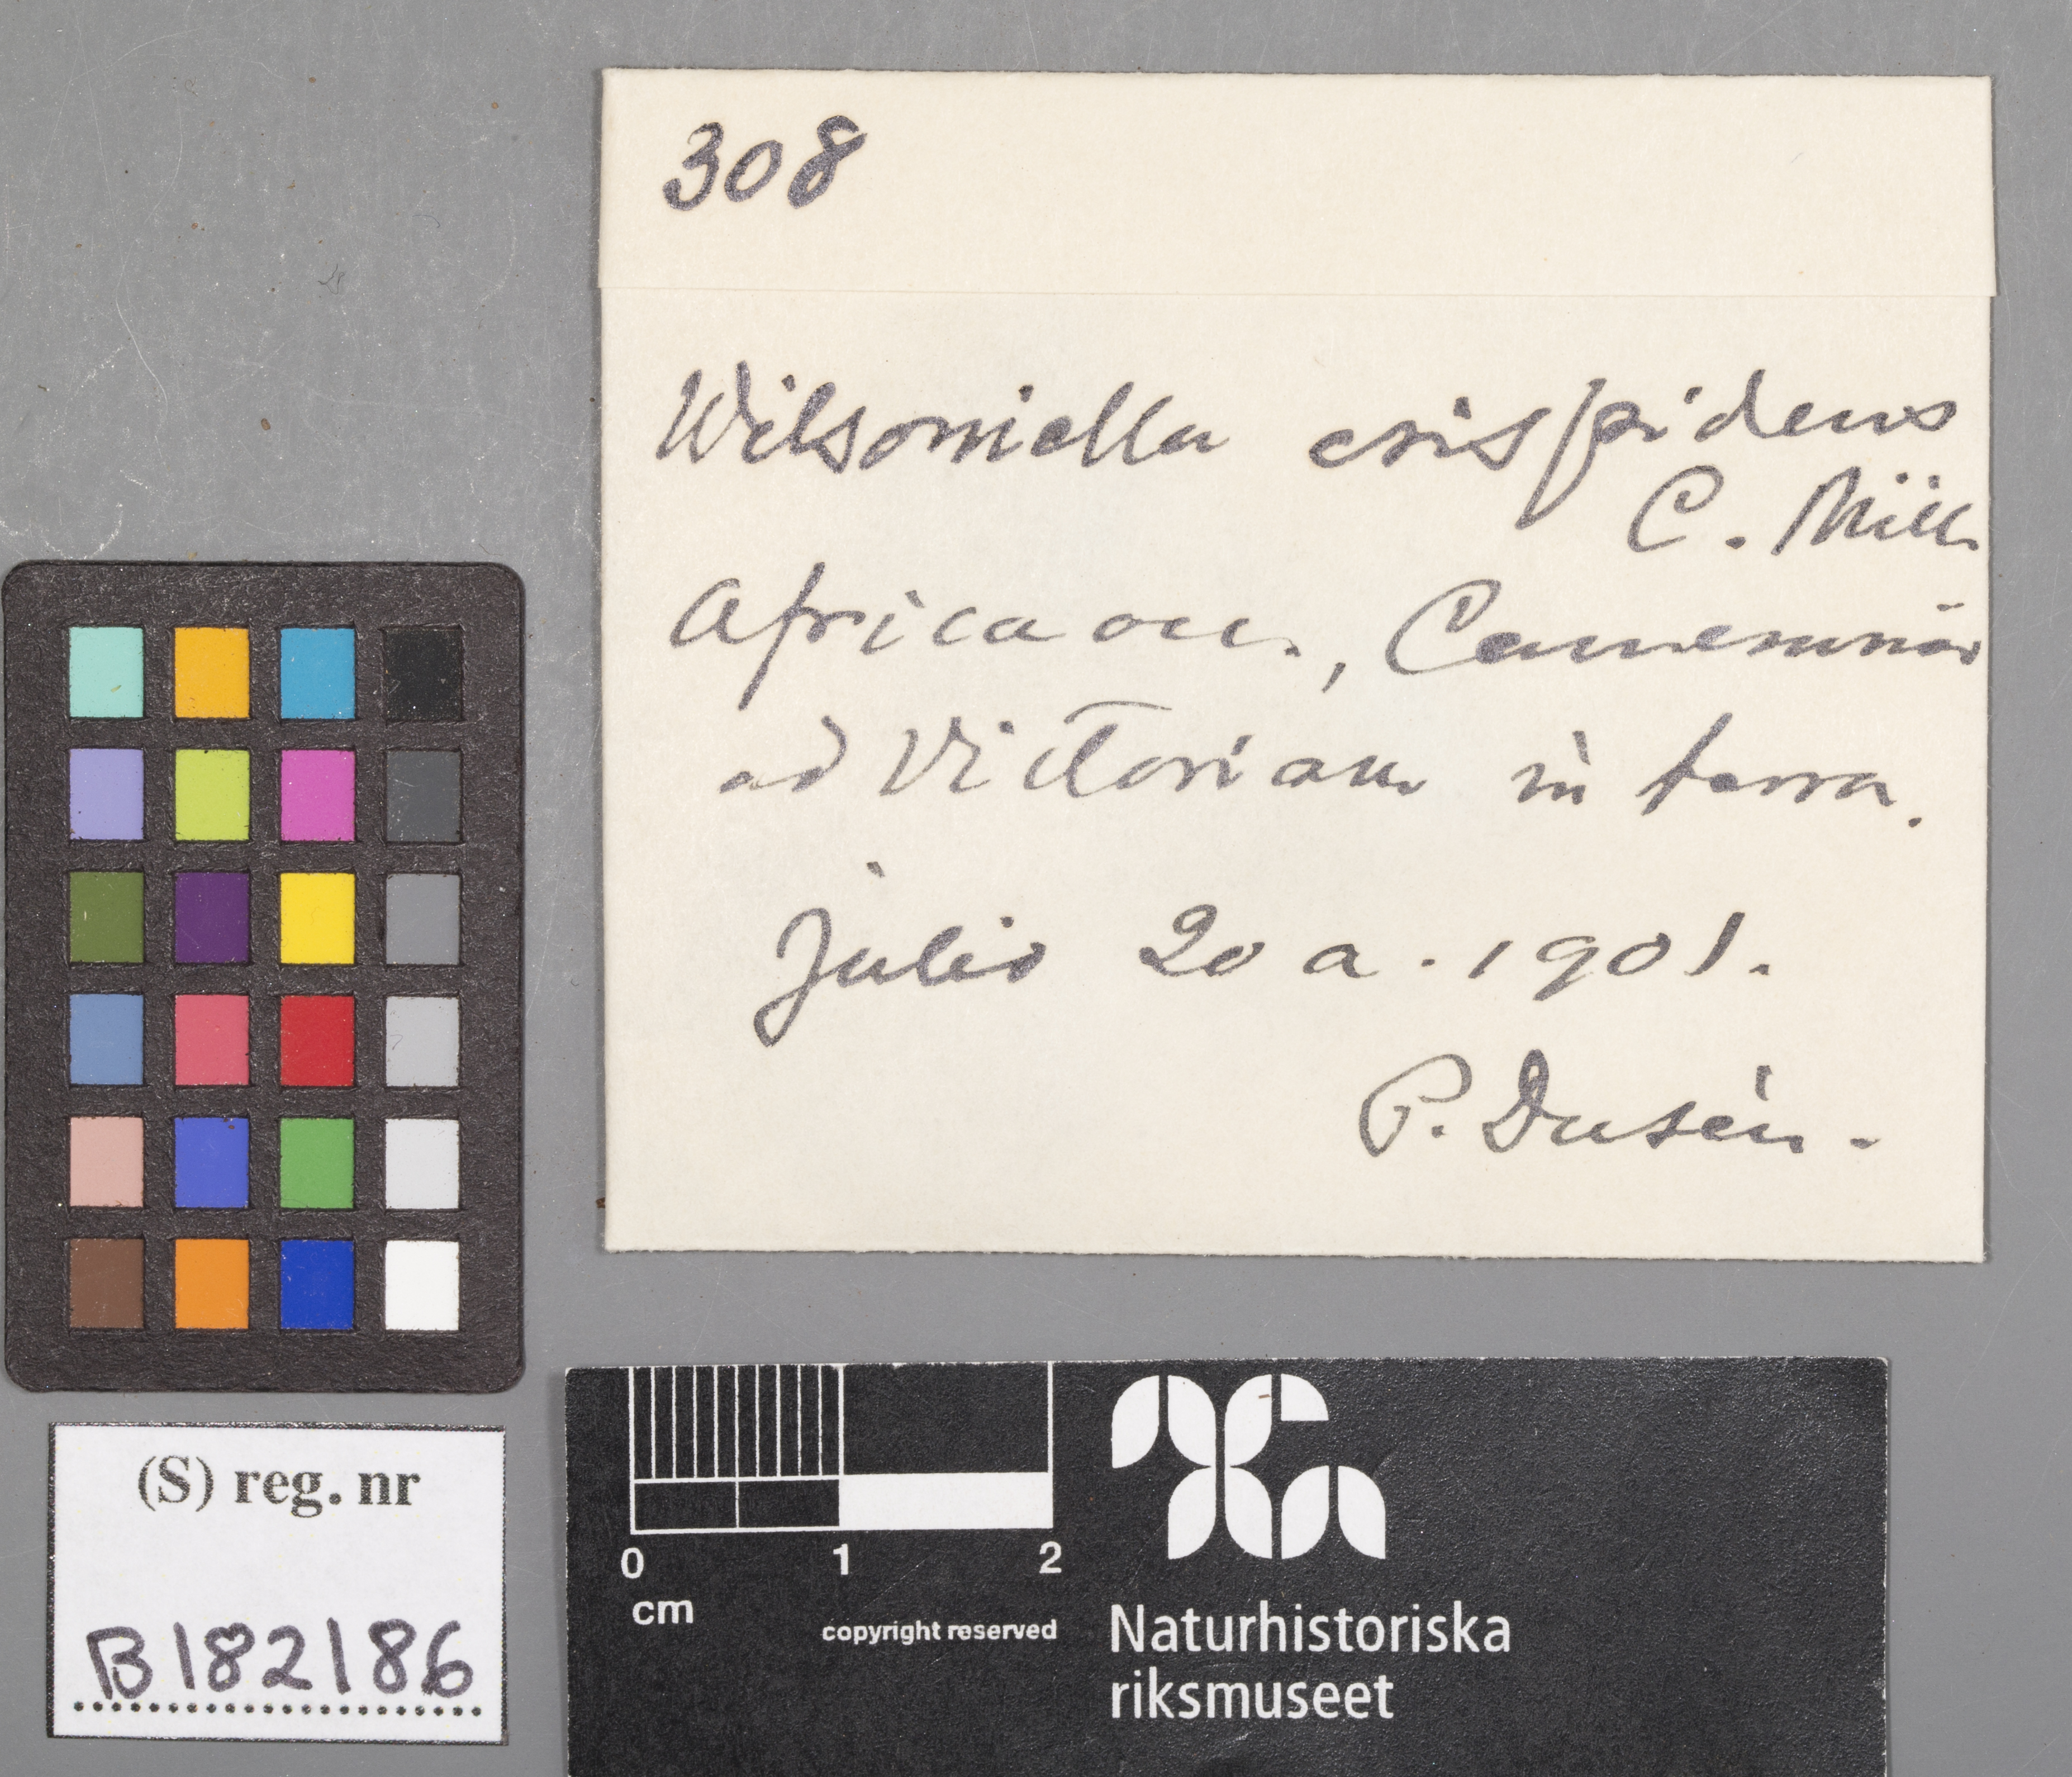 308
Wilsoniella crispidens
C. Müll.
Africa occ., Cameruniæ
ad Victoriam in terra.
Julio 20 a. 1901.
P. Dusén.
(S) reg. nr
B182186
0 1 2
cm
copyright reserved
Naturhistoriska
riksmuseet